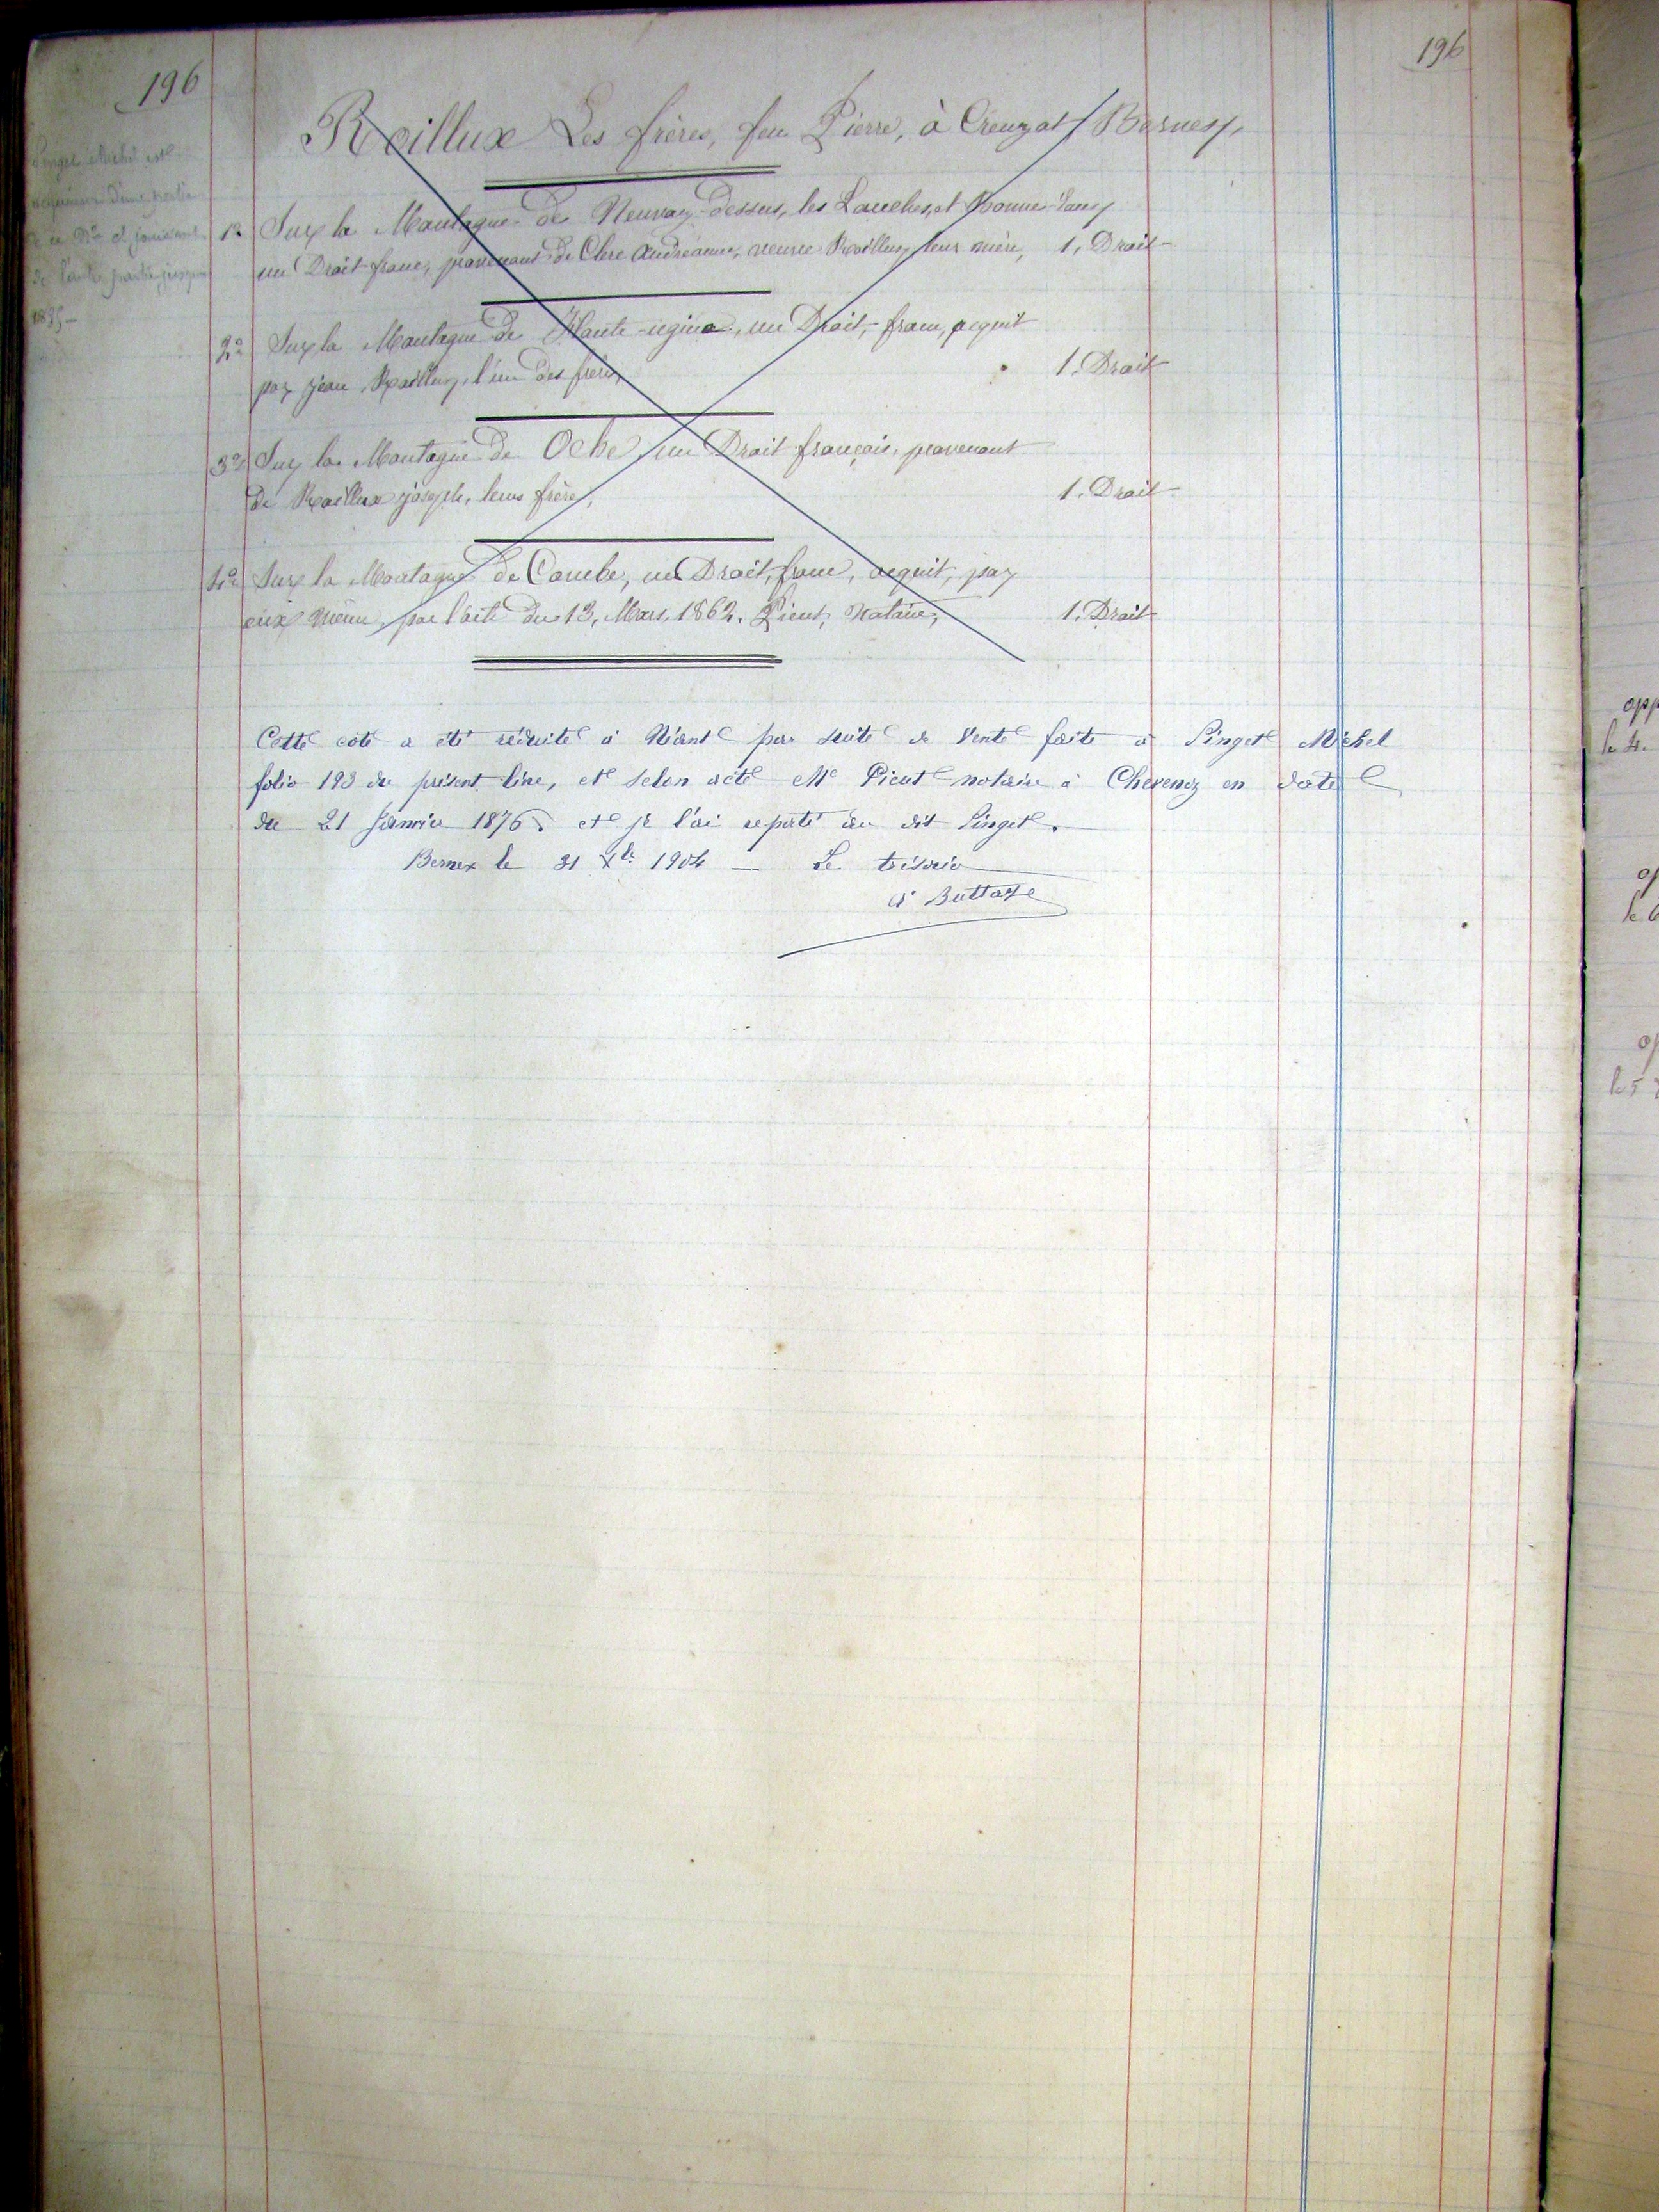 196
196
Roillux Les frères, feu Pierre, à Creuzat, Bernex,
Pinget Michel est
acquéreur d'une partie
de ce N° et jouissant
de l'autre partie, jusqu'en
1° Sur la Montagne de Neuvaz-dessus, les Lanches, et Bonne-Vaux
un Droit franc, provenant de Clerc Andréanne, veuve Roillux, leur mère, 1. Droit
2° Sur la Montagne de Haute-ugine, un Droit, franc, acquit
par jean Roillux, l'un des frères, 1. Droit
3° Sur la Montagne de Oche, un Droit français, provenant
de Roillux joseph, leur frère, 1. Droit
4° Sur la Montagne de Combe, un Droit, franc, acquit, par
eux même, par l'acte du 13, Mars, 1862. Picut, Notaire, 1. Droit
Cette cote a été réduite à Néant par suite de Vente faite à Pinget Michel
folio 193 du présent livre, et selon acte Me Picut notaire à Chevenoz en date
du 21 Janvier 1876 et je l'ai reporté au dit Pinget.
Bernex le 31 Xbre 1904 — Le trésorier
Buttay
opp
le 4.